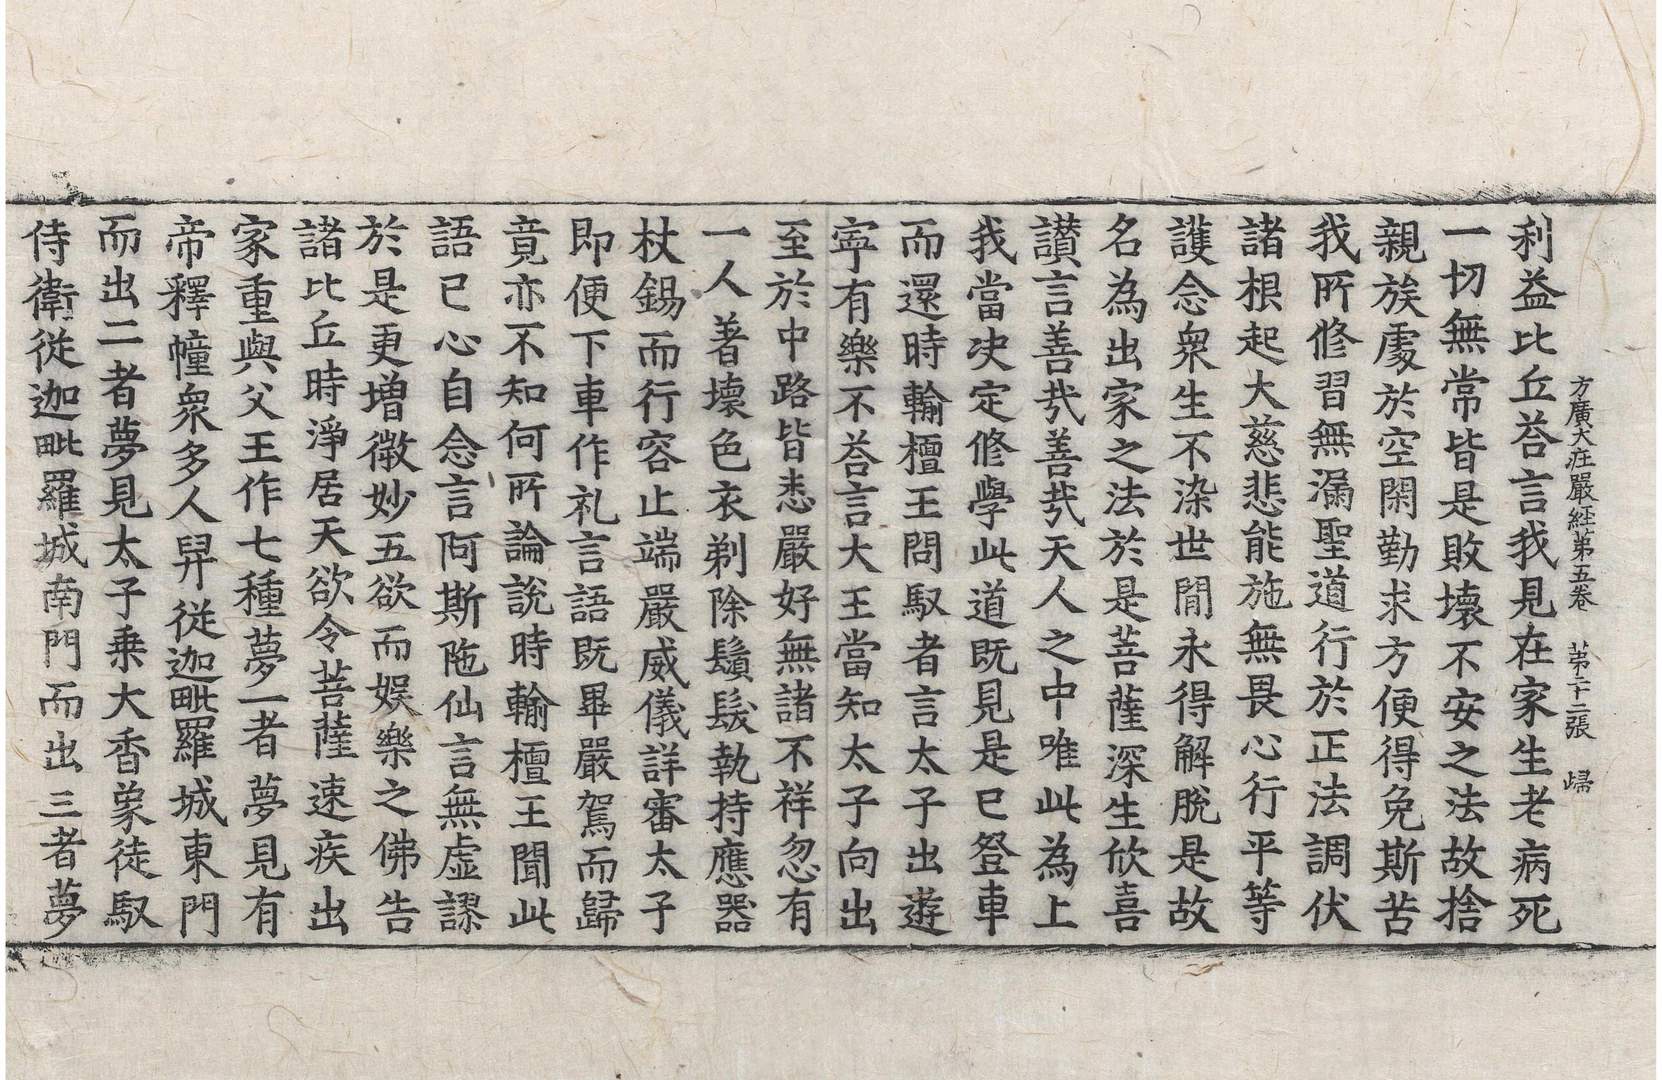 方廣大莊嚴経第五卷 第二十二張 歸
利益比丘荅言我見在家生老病死
一切無常皆是敗壞不安之法故捨
親族處於空閑勤求方便得免斯苦
我所修習無漏聖道行於正法調伏
諸根起大慈悲能施無畏心行平等
護念衆生不染世間永得解脫是故
名為出家之法於是菩薩深生欣喜
讃言善哉善哉天人之中唯此為上
我當決定修學此道既見是已登車
而還時輸檀王問馭者言太子出遊
寧有樂不荅言大王當知太子向出
至於中路皆悉嚴好無諸不祥忽有
一人著壞色衣剃除鬚髮執持應器
杖錫而行容止端嚴威儀詳審太子
即便下車作礼言語既畢嚴駕而歸
竟亦不知何所論說時輸檀王聞此
語已心自念言阿斯陁仙言無虛謬
於是更增微妙五欲而娛樂之佛告
諸比丘時淨居天欲令菩薩速疾出
家重與父王作七種夢一者夢見有
帝釋幢衆多人舁從迦毗羅城東門
而出二者夢見太子乗大香象徒馭
侍衛從迦毗羅城南門而出三者夢